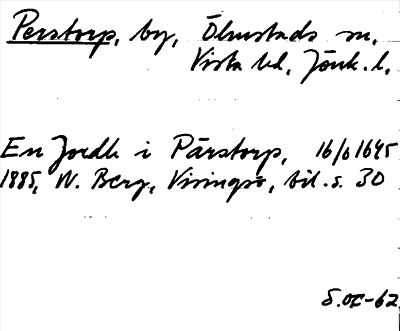 Perstorp, by, Ölmstads sn,
Vista hd, Jönk. l,
En Jordh i Pärstorp, 16/6 1645
1885, W. Berg, Visingsö, bil. s. 30
S.OE-62